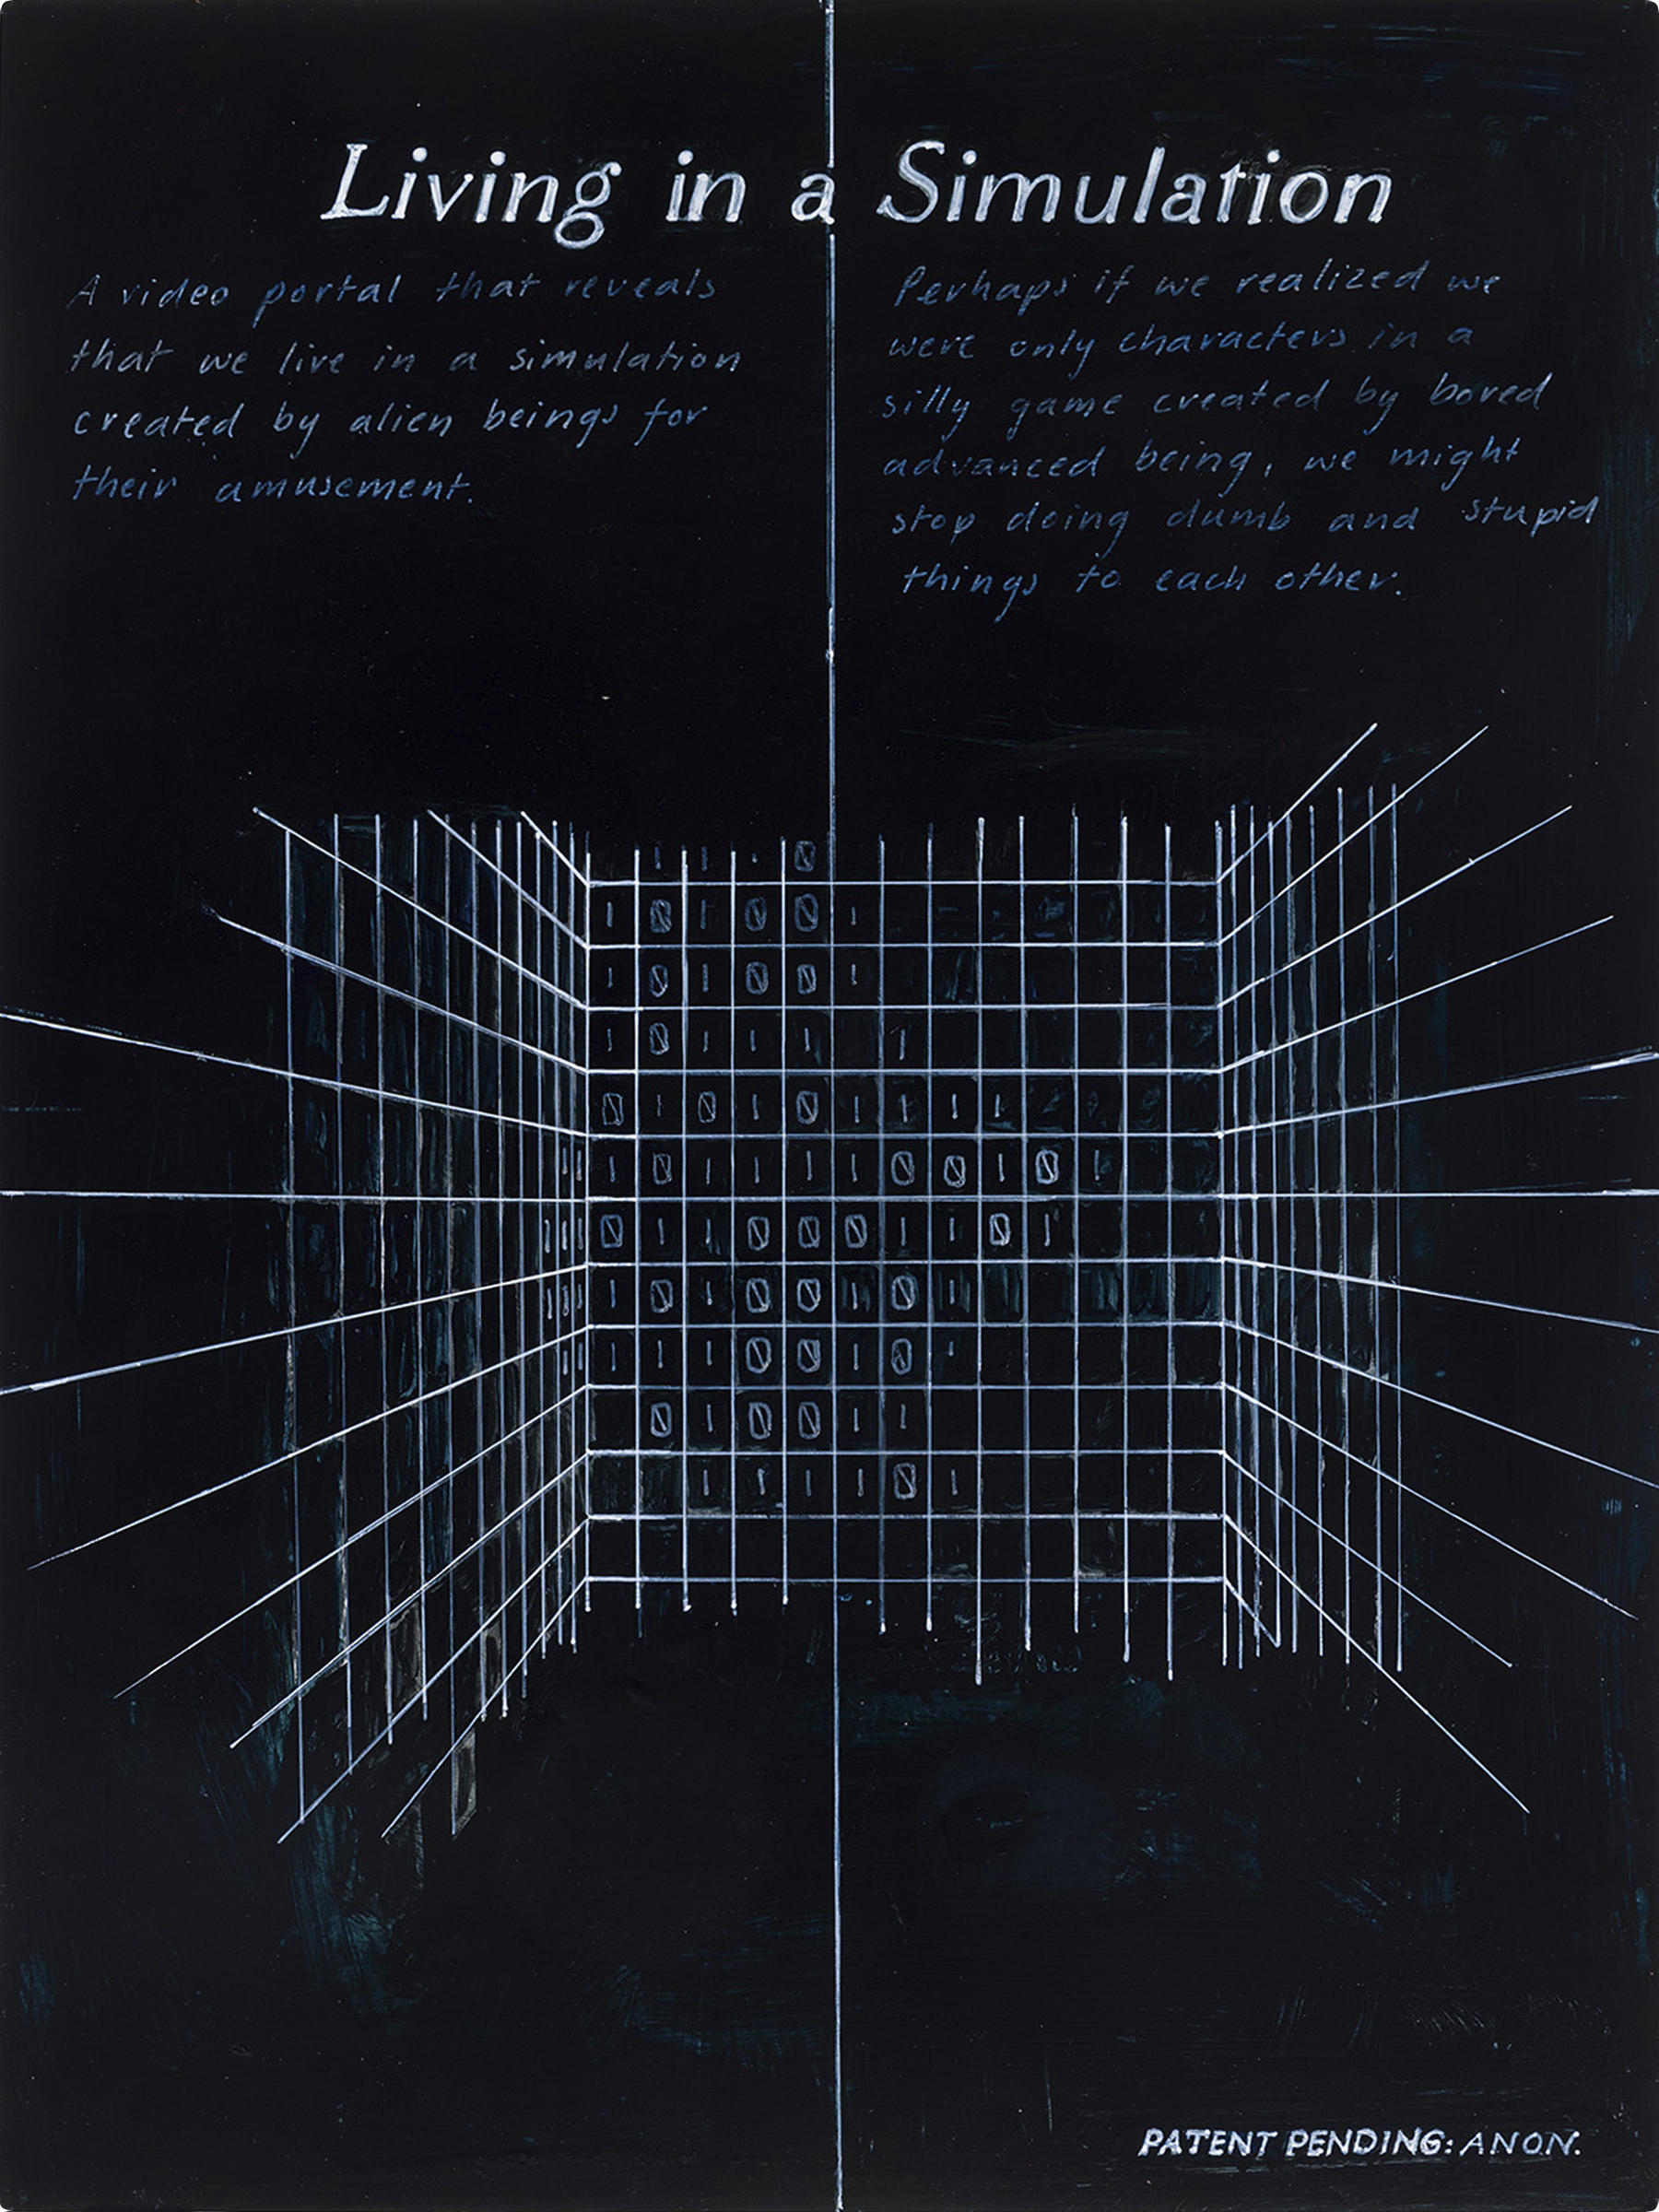 Living in a Simulation
A video portal that reveals
that we live in a simulation
created by alien beings for
their amusement.
Perhaps if we realized we
were only characters in a
silly game created by bored
advanced being, we might
stop doing dumb and stupid
things to each other.
1 1 0
1 0 1 0 0 1
1 0 1 0 0 1
1 0 1 1 1 1
0 1 0 1 0 1 1 1 1
1 1 1 0 1 1 1 1 0 0 1 0 1
1 1 1 0 1 1 0 0 0 1 1 0 1
1 1 1 1 0 1 0 0 1 0 1
1 1 1 1 1 0 0 1 0 1
0 1 0 0 1 1
1 1 1 1 0 1
PATENT PENDING: ANON.